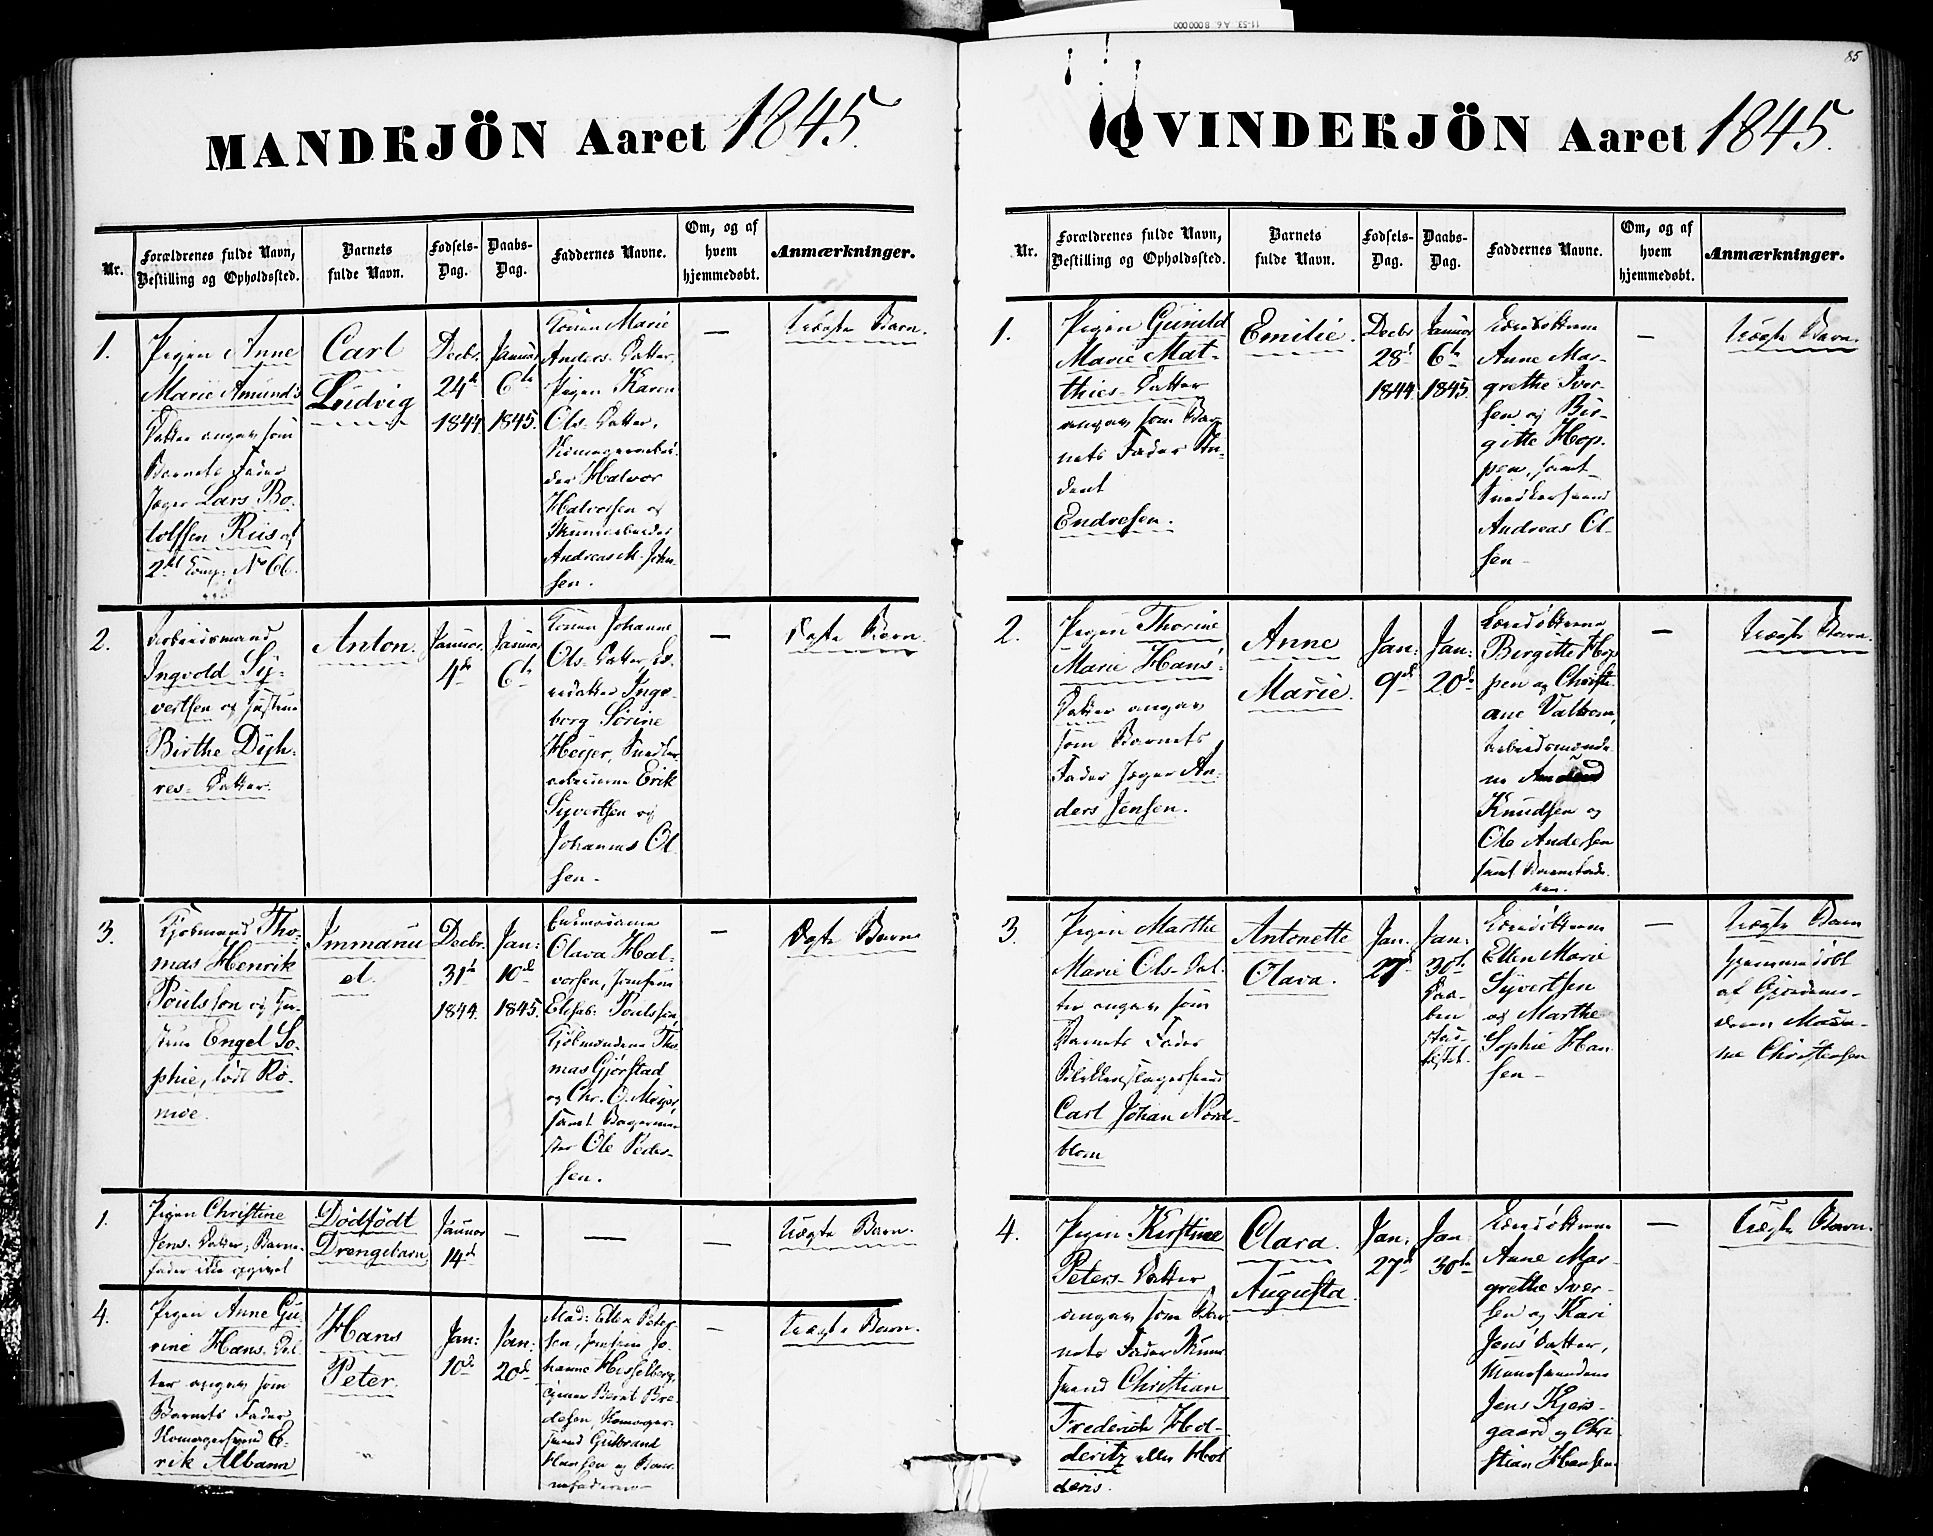 11-53. A6. 8000000
85
MANDKJÖN Aaret 1845.
Nr.
Forældrenes fulde Navn,
Bestilling og Opholdssted.
Barnets
fulde Navn.
Fødsels-
Dag.
Daabs-
Dag.
Faddernes Navne.
Om, og af
hvem
hjemmedøbt.
Anmærkninger.
1.
Pigen Anne
Marie Amund's
Datter angav som
Barnets Fader
Jæger Lars Bo-
tolfsen Riis af
2det Comp: No 66.
Carl
Ludvig
Decbr.
24de
1844.
Januar
6te
1845.
Konen Marie
Anders-Datter,
Pigen Karen
Ols-Datter,
der Halvor
Halvorsen og
Andreas M. John-
sen.
—
Uægte Barn.
2.
Arbeidsmand
Ingvold Sy-
vertsen og Hustrue
Birthe Dyh-
res-Datter.
Anton.
Januar
4de
Januar
6te
Konen Johanne
Ols-Datter,
Inge-
borg Sørine
Heijer,
Erik
Syvertsen og
Johannes Ol-
sen.
—
Ægte Barn.
3.
Kjøbmand Tho-
mas Henrik
Poulsson og Hu-
strue Engel So-
phie, født Ro-
moe.
Immanu
el.
Decbr.
31te
1844.
Jan:
10de
1845.
Olava Hal-
vorsen, Jomfrue
Elisab: Poulssen,
Kjøbmændene Tho-
mas Gjørstad
og Chr. O. Meijer,
samt Bagerme-
ster Ole Peder-
sen.
—
Ægte Barn
1.
Pigen Christine
Jens-Datter, Barne-
fader ikke opgivet
Dödfödt
Drengebarn
Januar
14de
—
—
—
Uægte Barn.
4.
Pigen Anne Gu-
rine Hans-Dat-
ter angav som
Barnets Fader
Erik Albann
Hans
Peter.
Jan:
10de
Jan:
20de
Mad: Ellen Peter-
sen, Jomfrue Jo-
hanne Hesselberg,
Bernt Bre-
desen,
svend Gulbrand
Hansen og Barne-
faderen
—
Uægte Barn.
QVINDEKJÖN Aaret 1845.
Nr.
Forældrenes fulde Navn,
Bestilling og Opholdssted.
Barnets
fulde Navn.
Fødsels-
Dag.
Daabs-
Dag.
Faddernes Navne.
Om, og af
hvem
hjemmedøbt.
Anmærkninger.
1.
Pigen Gunild
Marie Mat-
thies-Datter
angav som Bar-
nets Fader Stu-
dent
Endresen.
Emilie.
Decbr
28de
1844.
Januar
6te
1845.
Anne Mar-
grethe Iver-
sen og Bir-
gitte Hop-
pen, samt
Snedkersvend
Andreas Ol-
sen
—
Uægte Barn.
2.
Pigen Thorine
Marie Hans'-
Datter angav
som Barnets
Fader Jæger An-
ders Jensen.
Anne
Marie.
Jan:
9de
Jan:
20de
Birgitte Hop
pen og Christi-
ane Valbom,
Arbeidsmænde-
ne
Knudsen og
Ole Andersen
samt Barnefade-
ren.
—
Uægte Barn.
3.
Pigen Marthe
Marie Ols-Dat-
ter angav som
Barnets Fader
Blikkenslagersvend
Carl Johan Nord-
blom
Antonette
Olava.
Jan.
27de
Jan:
30te
Ellen Marie
Syvertsen
og Marthe
Sophie Han-
sen
—
Uægte Barn
hjemmedøbt
af Gjordemo-
deren
Christensen
4.
Pigen Kirstine
Peters-Datter
angav som Bar-
nets Fader
svend Christian
Frederich Hol-
deritz eller Hol
deris.
Clara
Augusta.
Jan:
27de
Jan:
30te
Anne Mar-
grethe Iver-
sen og Kari
Jens'Datter,
Muursvendene
Jens Kjers-
gaard og Chri-
stian Hansen
—
Uægte Barn.